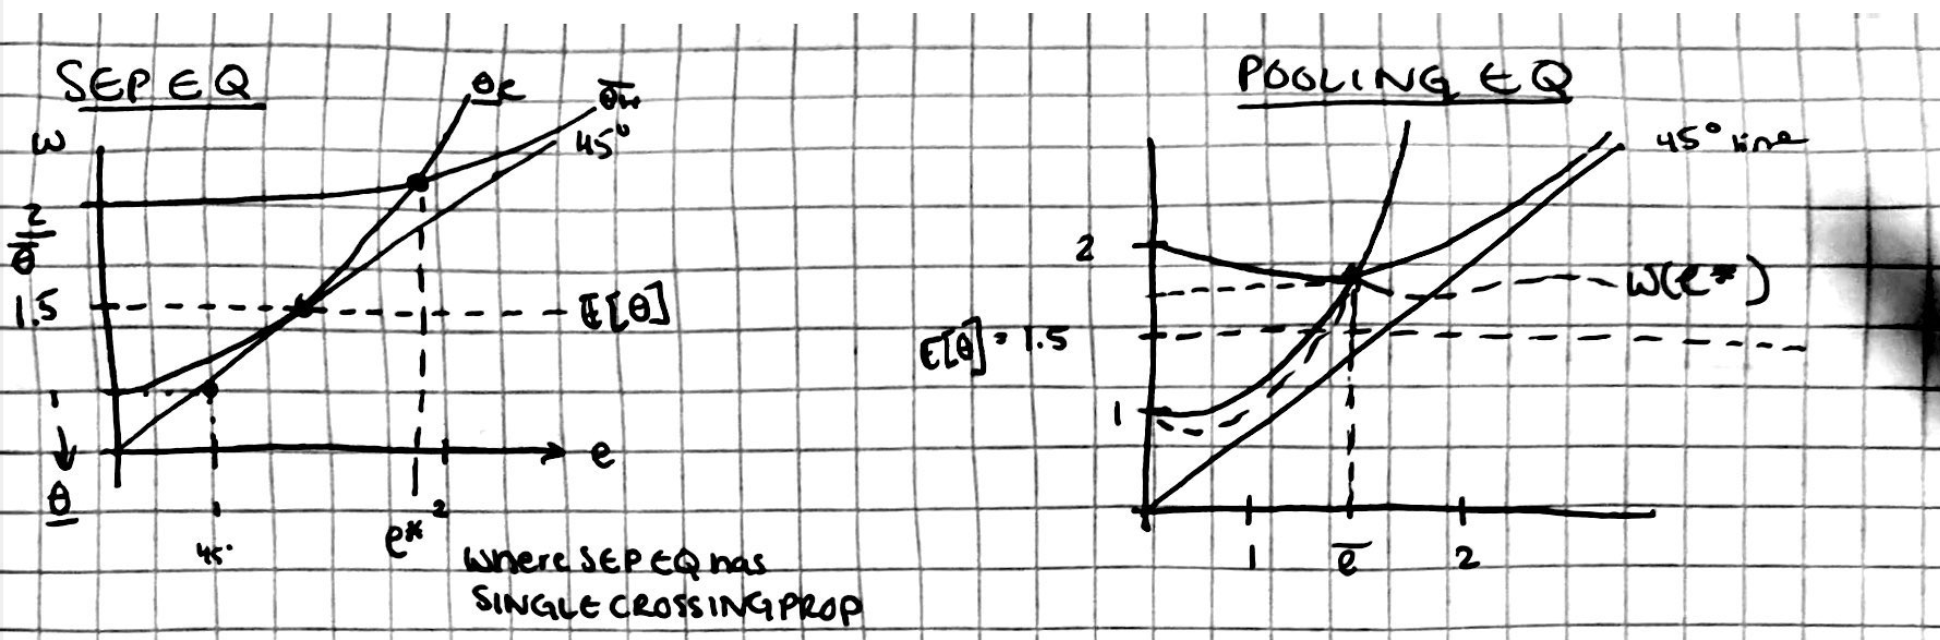 SEP EQ
w
45°
2
θ̅
1.5
E[θ]
θ̲
e
2
45°
e*
where SEP EQ has
SINGLE CROSSING PROP
POOLING EQ
45° line
2
W(e*)
E[θ] = 1.5
1
1
e̅
2